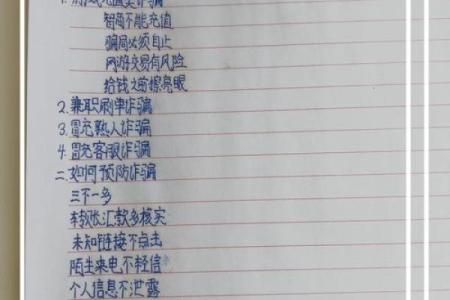 智商不能充值
骗局必须自止
网游交易有风险
给钱之前擦亮眼
2.兼职刷单诈骗
3.冒充熟人诈骗
4.冒充客服诈骗
二.如何预防诈骗
三不一多
转账汇款多核实
未知链接不点击
陌生来电不轻信
个人信息不泄露